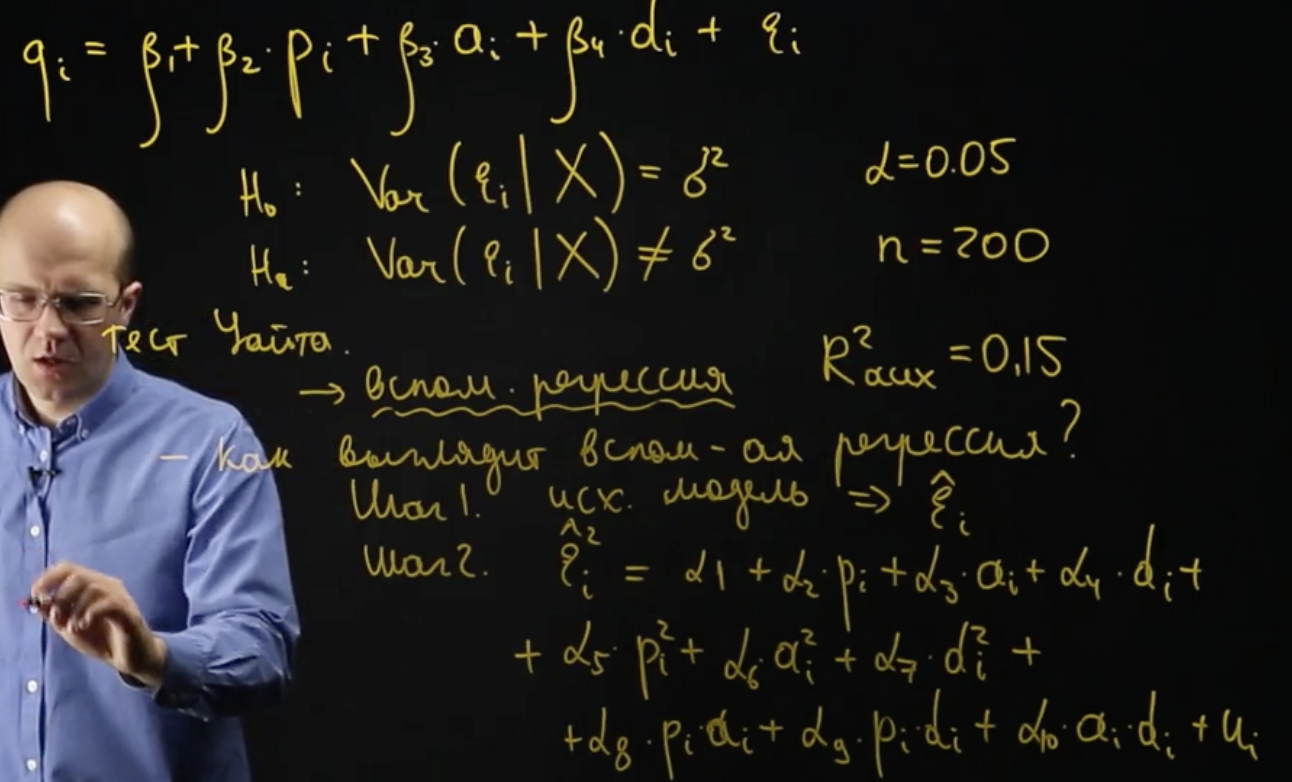 qᵢ = β₁ + β₂·pᵢ + β₃·aᵢ + β₄·dᵢ + εᵢ
H₀: Var(εᵢ|X) = σ² α=0.05
Hₐ: Var(εᵢ|X) ≠ σ² n=200
тест Уайта. R²aux = 0,15
→ вспом. регрессия
- как выглядит вспом-ая регрессия?
Шаг 1. исх. модель ⇒ ε̂ᵢ
Шаг 2. ε̂ᵢ² = α1 + α₂·pᵢ + α₃·aᵢ + α₄·dᵢ +
+ α₅·pᵢ² + α₆·aᵢ² + α₇·dᵢ² +
+ α₈·pᵢaᵢ + α₉·pᵢ·dᵢ + α₁₀·aᵢ·dᵢ + uᵢ